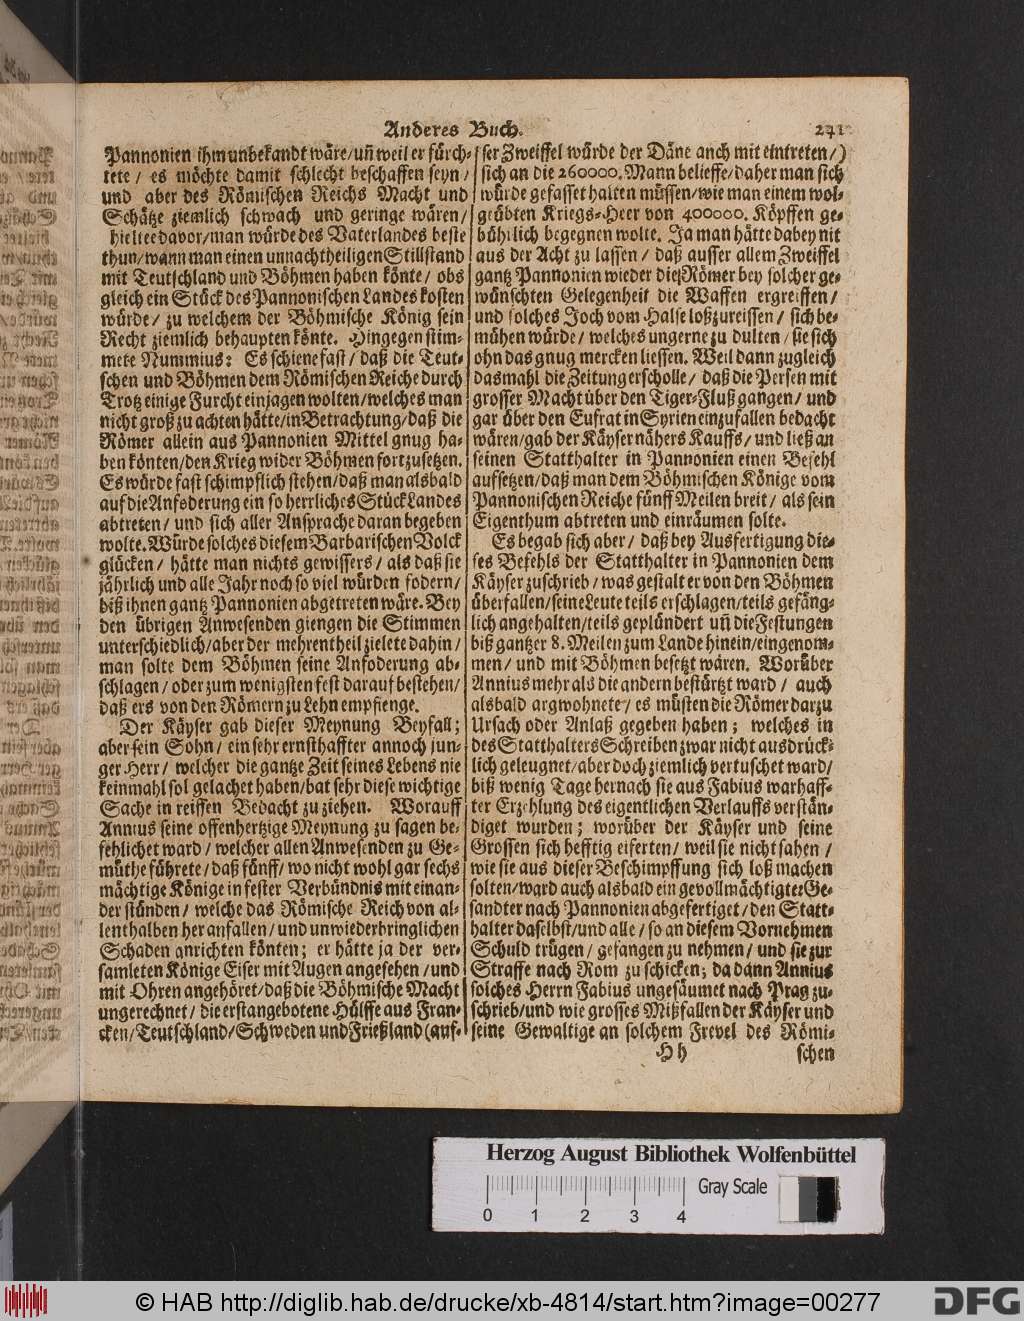 Anderes Buch. 241
Pannonien ihm unbekandt wäre/ uñ weil er fürch-
tete/ es möchte damit schlecht beschaffen seyn/
und aber des Römischen Reichs Macht und
Schätze ziemlich schwach und geringe wären/
hieltee davor/ man würde des Vaterlandes beste
thun/ wann man einen unnachtheiligen Stillstand
mit Teutschland und Böhmen haben könte/ obs
gleich ein Stück des Pannonischen Landes kosten
würde/ zu welchem der Böhmische König sein
Recht ziemlich behaupten könte. Hingegen stim-
mete Nummius: Es schiene fast/ daß die Teut-
schen und Böhmen dem Römischen Reiche durch
Trotz einige Furcht einjagen wolten/ welches man
nicht groß zu achten hätte/ in Betrachtung/ daß die
Römer allein aus Pannonien Mittel gnug ha-
ben könten/ den Krieg wider Böhmen fortzusetzen.
Es würde fast schimpflich stehen/ daß man alsbald
auf die Anfoderung ein so herrliches Stück Landes
abtreten/ und sich aller Ansprache daran begeben
wolte. Würde solches diesem Barbarischen Volck
glücken/ hätte man nichts gewissers/ als daß sie
jährlich und alle Jahr noch so viel würden fodern/
biß ihnen gantz Pannonien abgetreten wäre. Bey
den übrigen Anwesenden giengen die Stimmen
unterschiedlich/ aber der mehrentheil zielete dahin/
man solte dem Böhmen seine Anfoderung ab-
schlagen/ oder zum wenigsten fest darauf bestehen/
daß ers von den Römern zu Lehn empfienge.
Der Käyser gab dieser Meynung Beyfall;
aber sein Sohn/ ein sehr ernsthaffter annoch jun-
ger Herr/ welcher die gantze Zeit seines Lebens nie
keinmahl sol gelachet haben/ bat sehr diese wichtige
Sache in reiffen Bedacht zu ziehen. Worauff
Annius seine offenhertzige Meynung zu sagen be-
fehlichet ward/ welcher allen Anwesenden zu Ge-
müthe führete/ daß fünff/ wo nicht wohl gar sechs
mächtige Könige in fester Verbündnis mit einan-
der stünden/ welche das Römische Reich von al-
lenthalben her anfallen/ und unwiederbringlichen
Schaden anrichten könten; er hätte ja der ver-
samleten Könige Eifer mit Augen angesehen/ und
mit Ohren angehöret/ daß die Böhmische Macht
ungerechnet/ die erstangebotene Hülffe aus Fran-
cken/ Teutschland/ Schweden und Frießland (auf-
ser Zweiffel würde der Däne anch mit eintreten/)
sich an die 260000. Mann belieffe/ daher man sich
würde gefasset halten müssen/ wie man einem wol-
geübten Kriegs-Heer von 400000. Köpffen ge-
bührlich begegnen wolte. Ja man hätte dabey nit
aus der Acht zu lassen/ daß ausser allem Zweiffel
gantz Pannonien wieder die Römer bey solcher ge-
wünschten Gelegenheit die Waffen ergreiffen/
und solches Joch vom Halse loßzureissen/ sich be-
mühen würde/ welches ungerne zu dulten/ sie sich
ohn das gnug mercken liessen. Weil dann zugleich
dasmahl die Zeitung erscholle/ daß die Persen mit
grosser Macht über den Tiger-Fluß gangen/ und
gar über den Eufrat in Syrien einzufallen bedacht
wären/ gab der Käyser nähers Kauffs/ und ließ an
seinen Statthalter in Pannonien einen Befehl
aufsetzen/ daß man dem Böhmischen Könige vom
Pannonischen Reiche fünff Meilen breit/ als sein
Eigenthum abtreten und einräumen solte.
Es begab sich aber/ daß bey Ausfertigung die-
ses Befehls der Statthalter in Pannonien dem
Käyser zuschrieb/ was gestalt er von den Böhmen
überfallen/ seine Leute teils erschlagen/ teils gefäng-
lich angehalten/ teils geplündert uñ die Festungen
biß gantzer 8. Meilen zum Lande hinein/ eingenom-
men/ und mit Böhmen besetzt wären. Worüber
Annius mehr als die andern bestürtzt ward/ auch
alsbald argwohnete/ es müsten die Römer darzu
Ursach oder Anlaß gegeben haben; welches in
des Statthalters Schreiben zwar nicht ausdrück-
lich geleugnet/ aber doch ziemlich vertuschet ward/
biß wenig Tage hernach sie aus Fabius warhaff-
ter Erzehlung des eigentlichen Verlauffs verstän-
diget wurden; worüber der Käyser und seine
Grossen sich hefftig eiferten/ weil sie nicht sahen/
wie sie aus dieser Beschimpffung sich loß machen
solten/ ward auch alsbald ein gevollmächtigter Ge-
sandter nach Pannonien abgefertiget/ den Statt-
halter daselbst/ und alle/ so an diesem Vornehmen
Schuld trügen/ gefangen zu nehmen/ und sie zur
Straffe nach Rom zu schicken; da dann Annius
solches Herrn Fabius ungesäumet nach Prag zu-
schrieb/ und wie grosses Mißfallen der Käyser und
seine Gewaltige an solchem Frevel des Römi-
Hh schen
Herzog August Bibliothek Wolfenbüttel
Gray Scale
0 1 2 3 4
© HAB http://diglib.hab.de/drucke/xb-4814/start.htm?image=00277
DFG